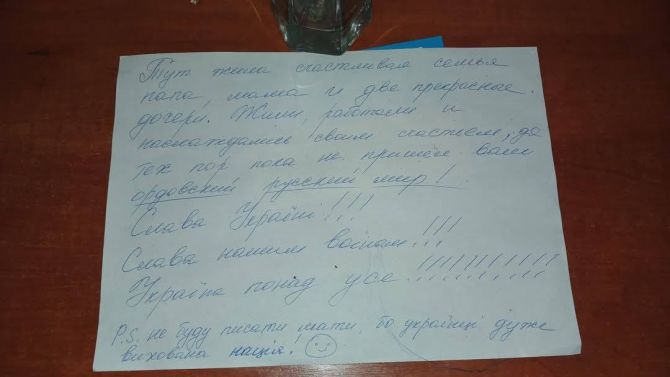 Тут жила счастливая семья
папа, мама и две прекрасные
дочери. Жили, работали и
наслаждались своим счастьем, до
тех пор пока не пришёл ваш
ордовский русский мир!
Слава Україні!!!
Слава нашим воїнам!!!
Україна понад усе!!!!!!!!!!!
P.S. не буду писати мати, бо українці дуже
вихована нація!